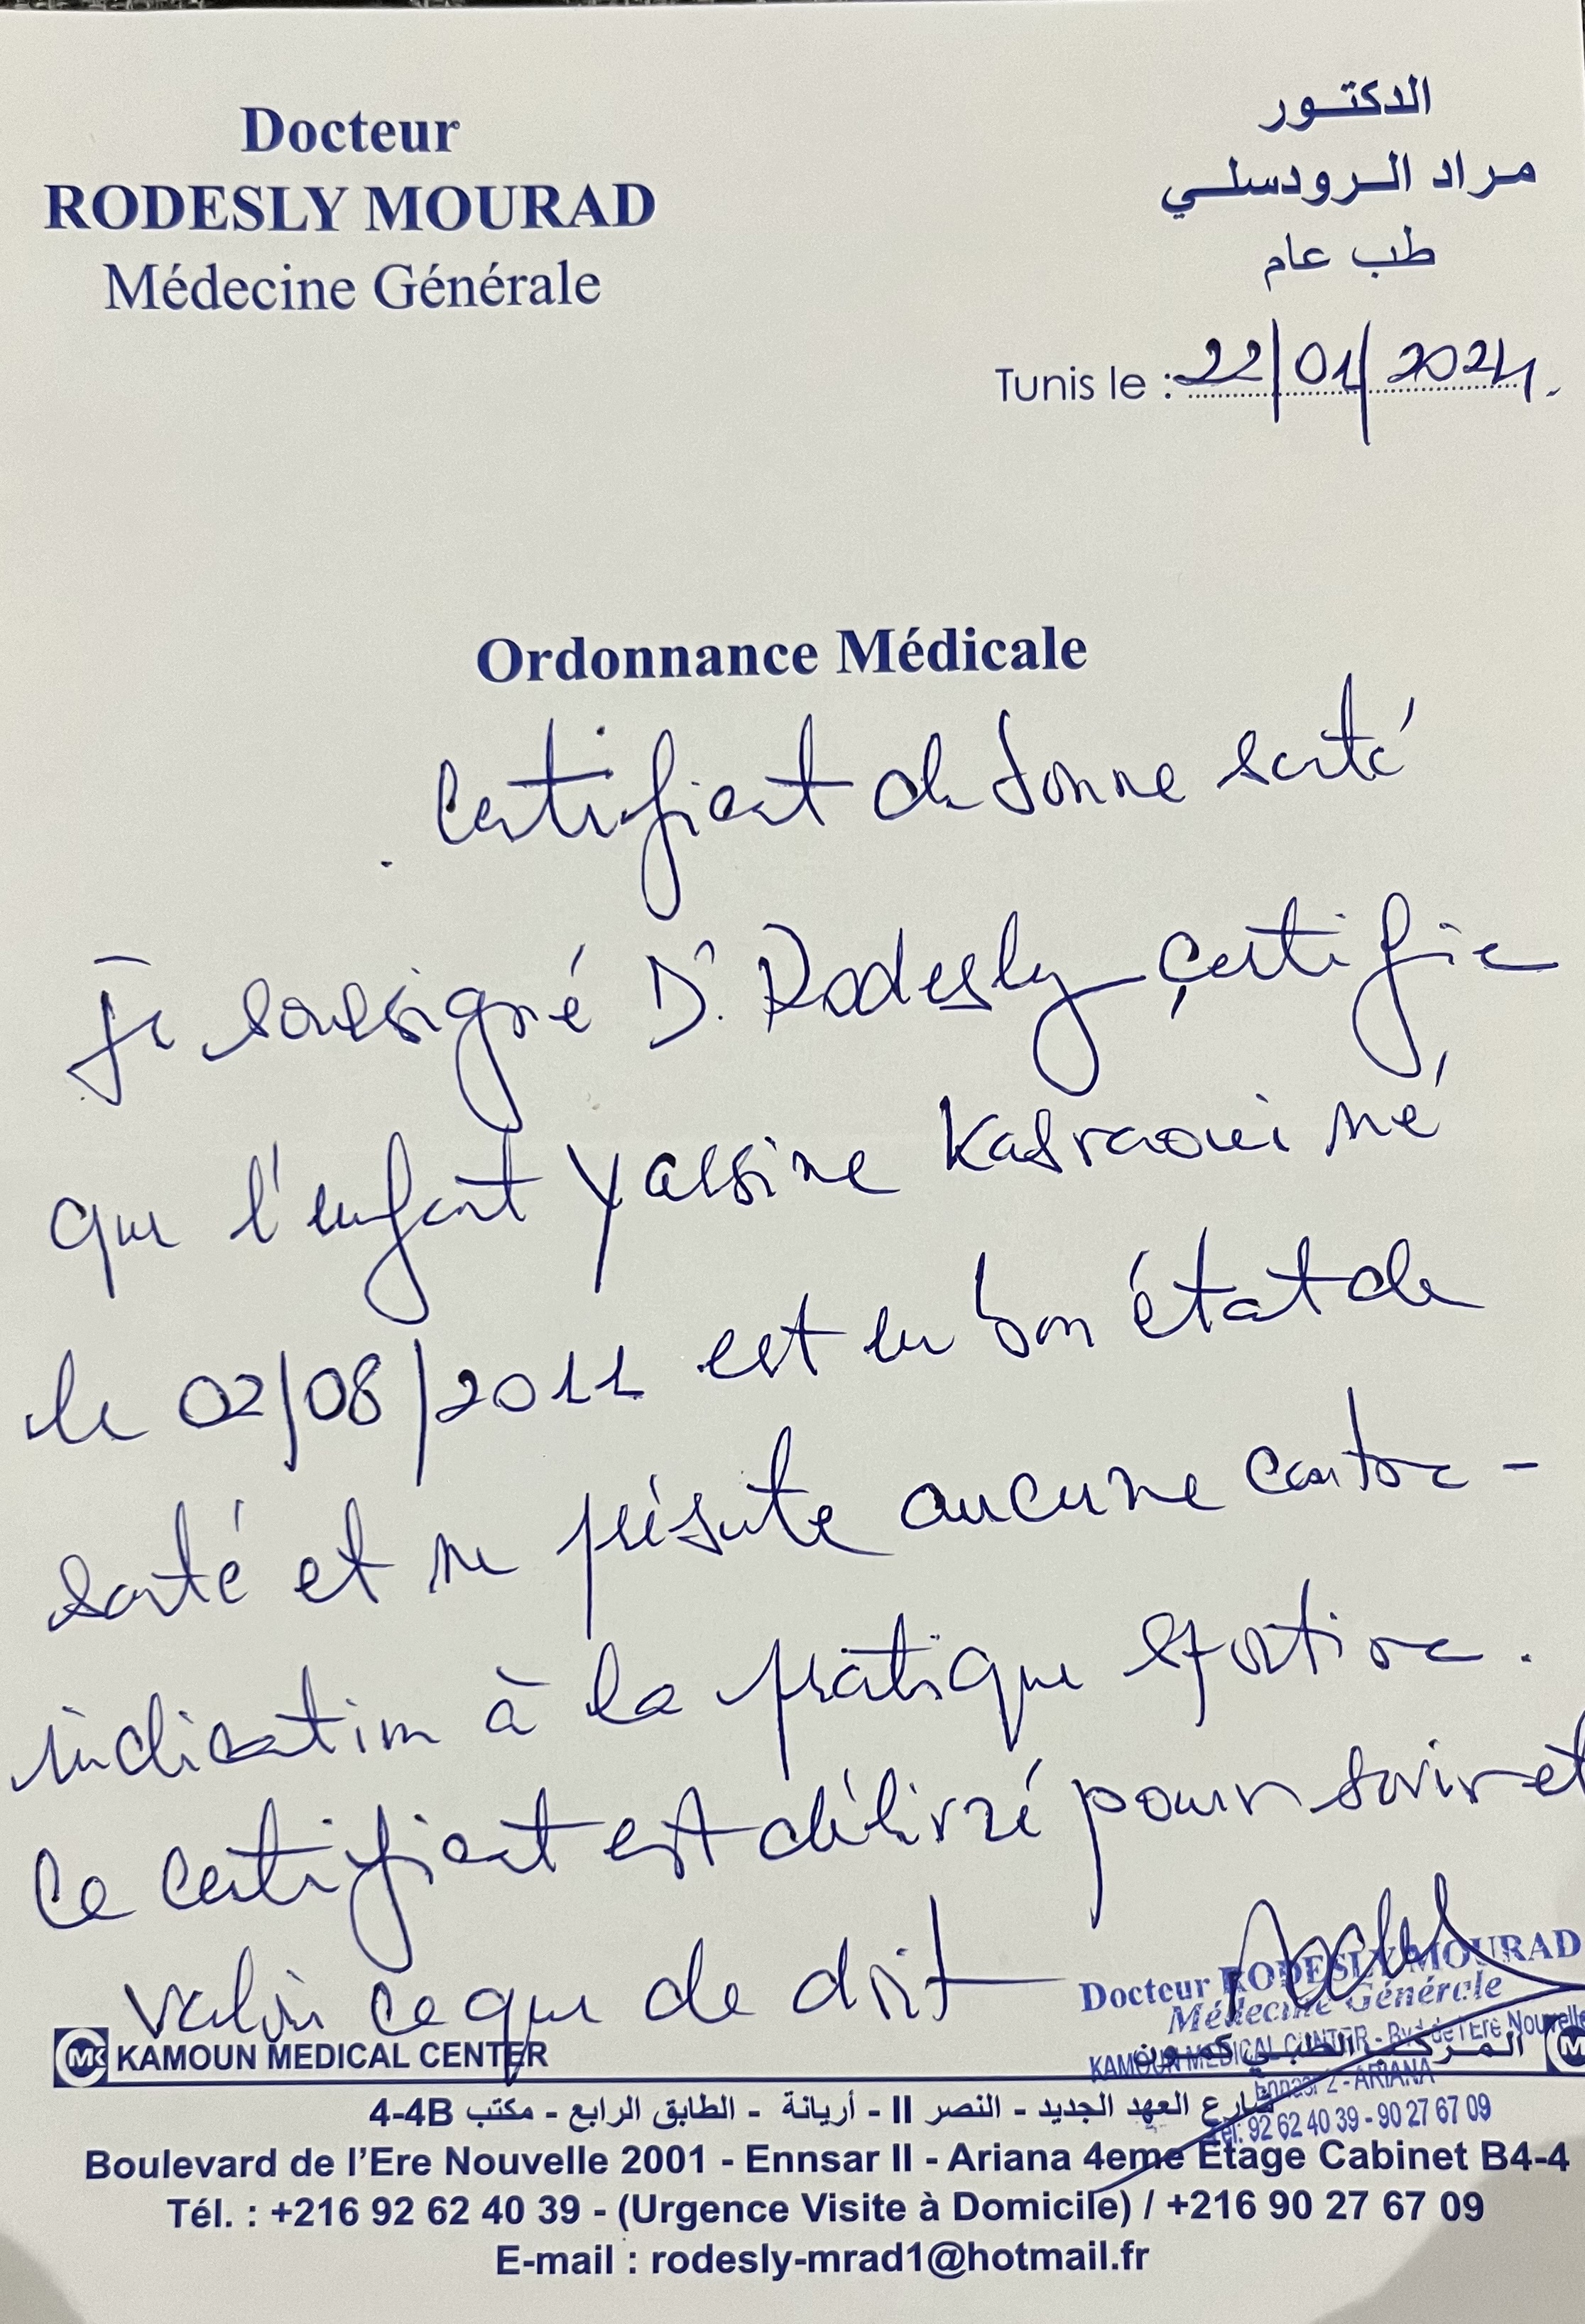 Docteur
RODESLY MOURAD
Médecine Générale
الدكتور
مراد الرودسلي
طب عام
Tunis le : 22/01/2024.
Ordonnance Médicale
Certificat de bonne santé
Je soussigné Dr. Rodesly certifie
que l'enfant Yassine Kasraoui né
le 02/08/2011 est en bon état de
santé et ne présente aucune contre-
indication à la pratique sportive.
Ce certificat est délivré pour servir et
valoir ce que de droit
Docteur RODESLY MOURAD
Médecine Générale
KAMOUN MEDICAL CENTER - Bvd de l'Ere Nouvelle
Ennasr 2 - ARIANA
Tél: 92 62 40 39 - 90 27 67 09
MK KAMOUN MEDICAL CENTER
المركز الطبي كمون
شارع العهد الجديد - النصر II - أريانة - الطابق الرابع - مكتب 4-4B
Boulevard de l'Ere Nouvelle 2001 - Ennsar II - Ariana 4eme Etage Cabinet B4-4
Tél. : +216 92 62 40 39 - (Urgence Visite à Domicile) / +216 90 27 67 09
E-mail : rodesly-mrad1@hotmail.fr